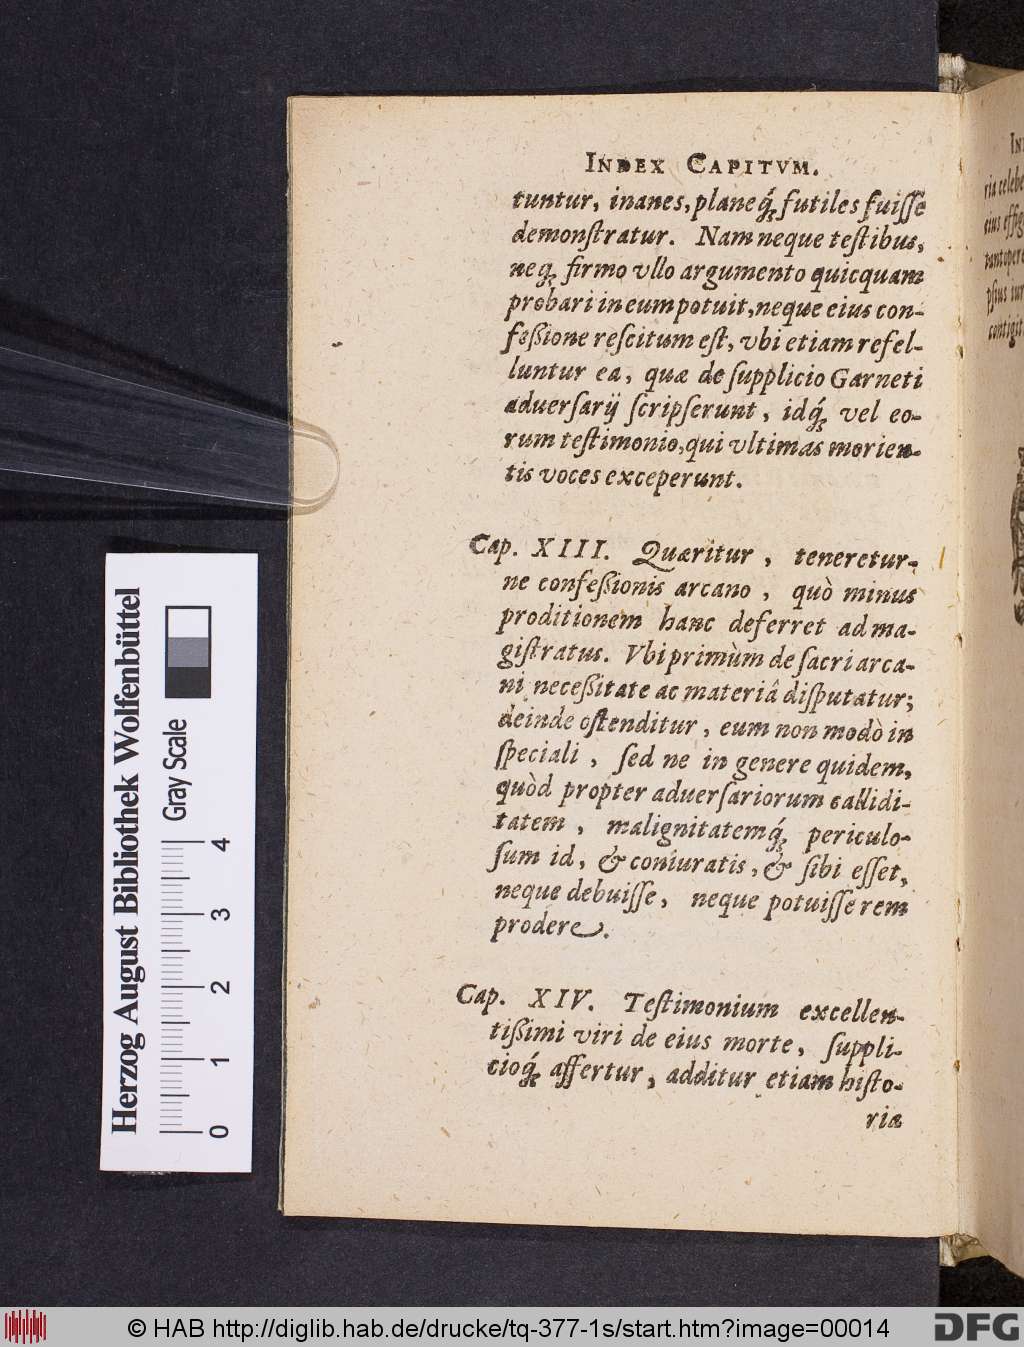 INDEX CAPITVM.
tuntur, inanes, planeq́; futiles fuiſſe
demonſtratur. Nam neque teſtibus,
neq; firmo vllo argumento quicquam
probari in eum potuit, neque eius con-
feßione reſcitum eſt, vbi etiam refel-
luntur ea, quæ de ſupplicio Garneti
aduerſarij ſcripſerunt, idq́; vel eo-
rum teſtimonio, qui vltimas morien-
tis voces exceperunt.
Cap. XIII. Quæritur, teneretur-
ne confeßionis arcano, quò minus
proditionem hanc deferret ad ma-
giſtratus. Vbi primùm de ſacri arca-
ni neceßitate ac materiâ diſputatur;
deinde oſtenditur, eum non modò in
ſpeciali, ſed ne in genere quidem,
quòd propter aduerſariorum callidi-
tatem, malignitatemq́; periculo-
ſum id, & coniuratis, & ſibi eſſet,
neque debuiſſe, neque potuiſſe rem
prodere.
Cap. XIV. Teſtimonium excellen-
tißimi viri de eius morte, ſuppli-
cioq́; affertur, additur etiam hiſto-
riæ
In
ria celebr
eius effig
tantopere
pſius iur
contigit
Herzog August Bibliothek Wolfenbüttel
Gray Scale
0 1 2 3 4
© HAB http://diglib.hab.de/drucke/tq-377-1s/start.htm?image=00014
DFG